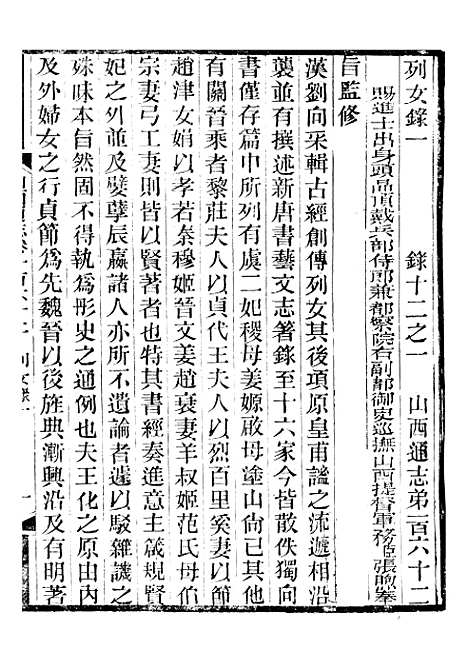 列女錄一　錄十二之一　山西通志弟一百六十二
賜進士出身頭品頂戴兵部侍郎兼都察院右副都御史巡撫山西提督軍務臣張煦奉
旨監修
漢劉向采輯古經創傳列女其後項原皇甫謐之沛遞相
襲並有撰述新唐書藝文志著錄至十六家今皆散佚獨向
書僅存篇中所列有虞二妃稷母姜嫄啟母塗山尙已其
有關晉乘者黎莊夫人以貞代王夫人以烈百里奚妻以節
趙津女娟以孝若秦穆姬晉文姜趙衰妻羊叔姬范氏母伯
宗妻弓工妻則皆以賢著者也特其書經奏進主箴規賢
妃之外並及孽孼辰嬴諸人亦不遺論者遽以駁雜譏之
殊昧本旨然固不得執為彤史之通例也夫王化之原由內
及外婦女之行貞節為先魏晉以後旌典漸興沿及有明著